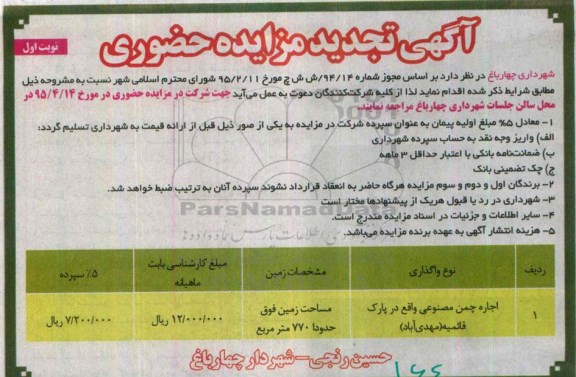 نوبت اول
آگهی تجدید مزایده حضوری
شهرداری چهارباغ در نظر دارد بر اساس مجوز شماره ۹۴/۱۴/ش ش چ مورخ ۹۵/۲/۱۱ شورای محترم اسلامی شهر نسبت به مشروحه ذیل
مطابق شرایط ذکر شده اقدام نماید لذا از کلیه شرکت‌کنندگان دعوت به عمل می‌آید جهت شرکت در مزایده حضوری در مورخ ۹۵/۴/۱۴ در
محل سالن جلسات شهرداری چهارباغ مراجعه نمایند.
۱- معادل ۵% مبلغ اولیه پیمان به عنوان سپرده شرکت در مزایده به یکی از صور ذیل قبل از ارائه قیمت به شهرداری تسلیم گردد:
الف) واریز وجه نقد به حساب سپرده شهرداری
ب) ضمانت‌نامه بانکی با اعتبار حداقل ۳ ماهه
ج) چک تضمینی بانک
۲- برندگان اول و دوم و سوم مزایده هرگاه حاضر به انعقاد قرارداد نشوند سپرده آنان به ترتیب ضبط خواهد شد.
۳- شهرداری در رد یا قبول هریک از پیشنهادها مختار است
۴- سایر اطلاعات و جزئیات در اسناد مزایده مندرج است.
۵- هزینه انتشار آگهی به عهده برنده مزایده می‌باشد.
ParsNamadData
ردیف نوع واگذاری مشخصات زمین مبلغ کارشناسی بابت ماهیانه ۵٪ سپرده
۱ اجاره چمن مصنوعی واقع در پارک قائمیه(مهدی‌آباد) مساحت زمین فوق حدودا ۷۷۰ متر مربع ۱۲/۰۰۰/۰۰۰ ریال ۷/۲۰۰/۰۰۰ ریال
حسین رنجی-شهردار چهارباغ